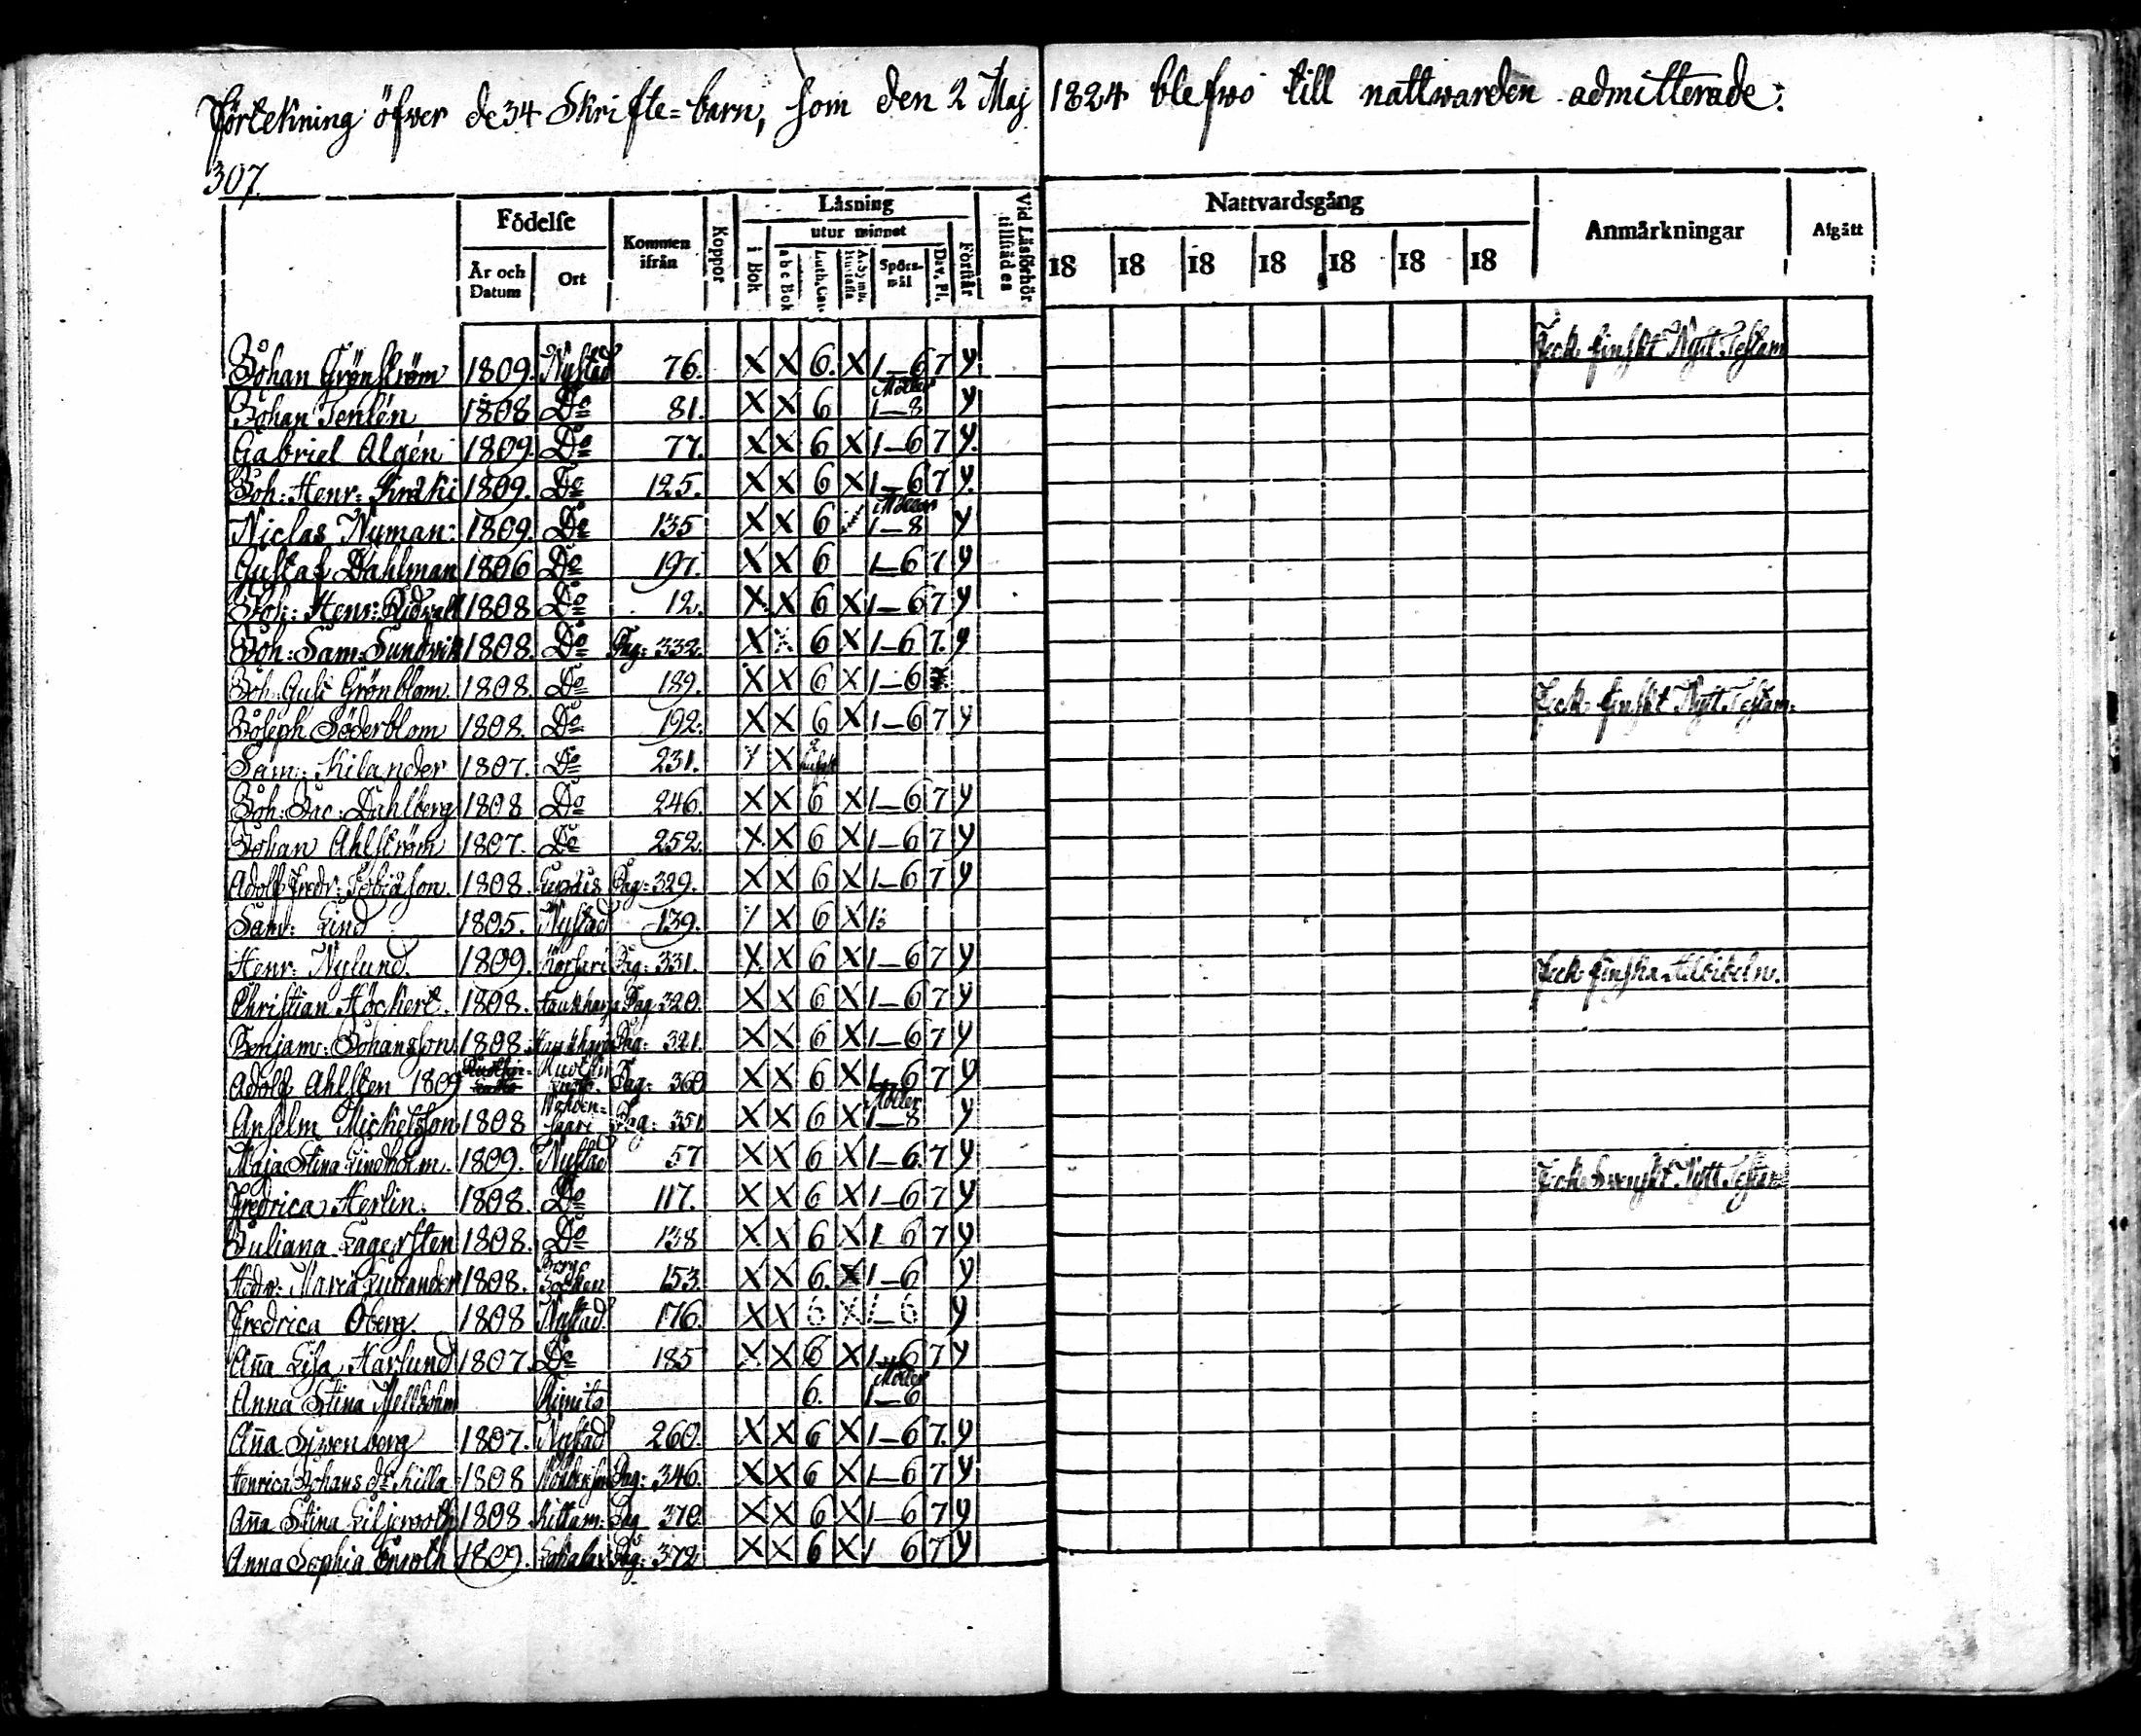 Förtekning öfwer de 34 Skrifte=barn, som den 2 Maj 1824 blefwo till nattwarden admitterade:
307.
Födelse Kommen ifrån Koppor Låsning Vid Låsförhör tillstädes Nattvardsgång Anmårkningar Afgått
År och Datum Ort i Bok utur minnet Förstår 18 18 18 18 18 18 18
a b c Bok Luth. Cat. Spörs-mål Dav. Ps.
Johan Grönström 1809. Nystad 76. X X 6. X 1–6 7 y. Feck finskt Nytt Testam
Johan Tenlén 1808 Do 81. X X 6 Möller 1–8 y
Gabriel Algén 1809. Do 77. X X 6 X 1–6 7 y.
Joh: Henr: 1809. Do 125. X X 6 X 1–6 7 y.
Niclas Nyman: 1809. Do 135 X X 6 1–8 y
Gustaf Dahlman 1806 Do 197. X X 6 1–6 7 y
Joh: Henr: 1808 Do 12. X X 6 X 1–6 7 y
Joh: Sam: Sundvik 1808. Do Pag: 332. X X 6 X 1–6 7. y
Joh: Gust Grönblom. 1808. Do 189. X X 6 X 1–6 7 Feck finskt Nytt Testam:
Joseph Söderblom 1808. Do 192. X X 6 X 1–6 7 y
Sam: Kilander 1807. Do 231. X
Joh: Jac: Dahlberg 1808 Do 246. X X 6 X 1–6 7 y
Johan Ahlström 1807. Do 252. X X 6 X 1–6 7 y
Adolf Fredr: Tobiasson. 1808. Pag: 329. X X 6 X 1–6 7 y
Sam: Lind 1805. Nystad 139. X 6 X
Henr: Nylund. 1809. Pag: 331. X X 6 X 1–6 7 y Feck finska
Christian Höckert. 1808. Haukharja Pag: 320. X X 6 X 1–6 7 y
Benjam: Johansson 1808. Haukharja Pag: 321. X X 6 X 1–6 7 y
Adolf Ahlsten 1809 Pag: 360 X X 6 X 1–6 7 y
Anselm Michelsson 1808 saari Pag: 351 X X 6 X Möller 1–8 y
Maja Stina Lindholm. 1809. Nystad 57 X X 6 X 1–6. 7 y
Fredrica Herlin. 1808. Do 117. X X 6 X 1–6 7 y Feck Swenskt Nytt Testam
Juliana Lagersten 1808. Do 138 X X 6 X 1 6 7 y
Maria 1808. Socken 153. X X 6. X 1–6 y
Fredrica Oberg. 1808 Nystad 176. X X 6 X 1–6 y
Aña Lisa Harlund 1807. Do 185 X X 6 X 1–6 7 y
Anna Stina Mellholm Kimito 6. Möller 1–6
Aña 1807. Nystad 260. X X 6 X 1–6 7. y
Henrica Johans dr Killa 1808 Pag: 346. X X 6 X 1–6 7 y
Aña Stina Liljeroth 1808. Kittam: Pag 370. X X 6 X 1–6 7 y
Anna Sophia Enroth 1809. Pag: 372 X X 6 X 1 6 7 y